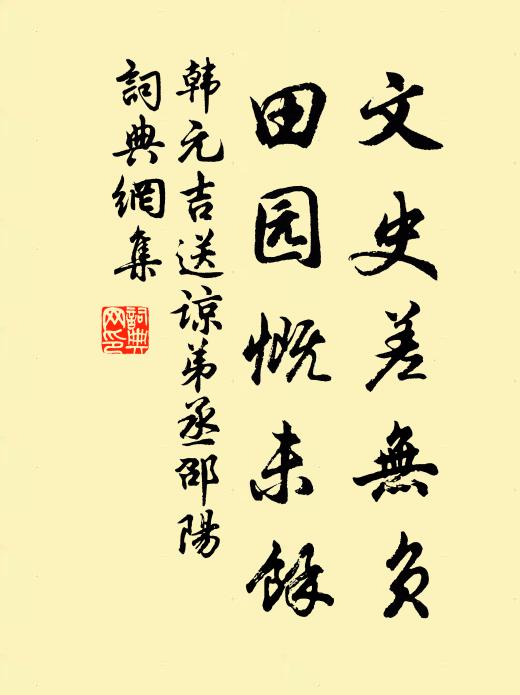 文史差無負
田园慨未餘
韩元吉送諒弟丞邵陽
詞典網集
詞典网印